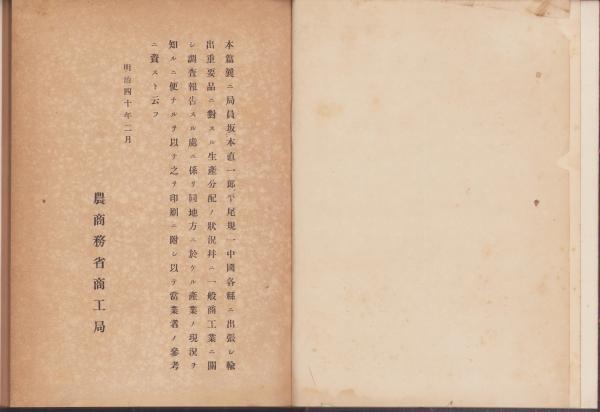 本篇曩ニ局員坂本直一郎、平尾現一中國各縣ニ出張シ輸
出重要品ニ對スル生產分配ノ狀況幷ニ一般商工業ニ關
シ調査報告スル處ニ係リ同地方ニ於ケル產業ノ現況ヲ
知ルニ便ナルヲ以テ之ヲ印刷ニ附シ以テ當業者ノ參考
ニ資スト云フ
明治四十年二月
農商務省商工局